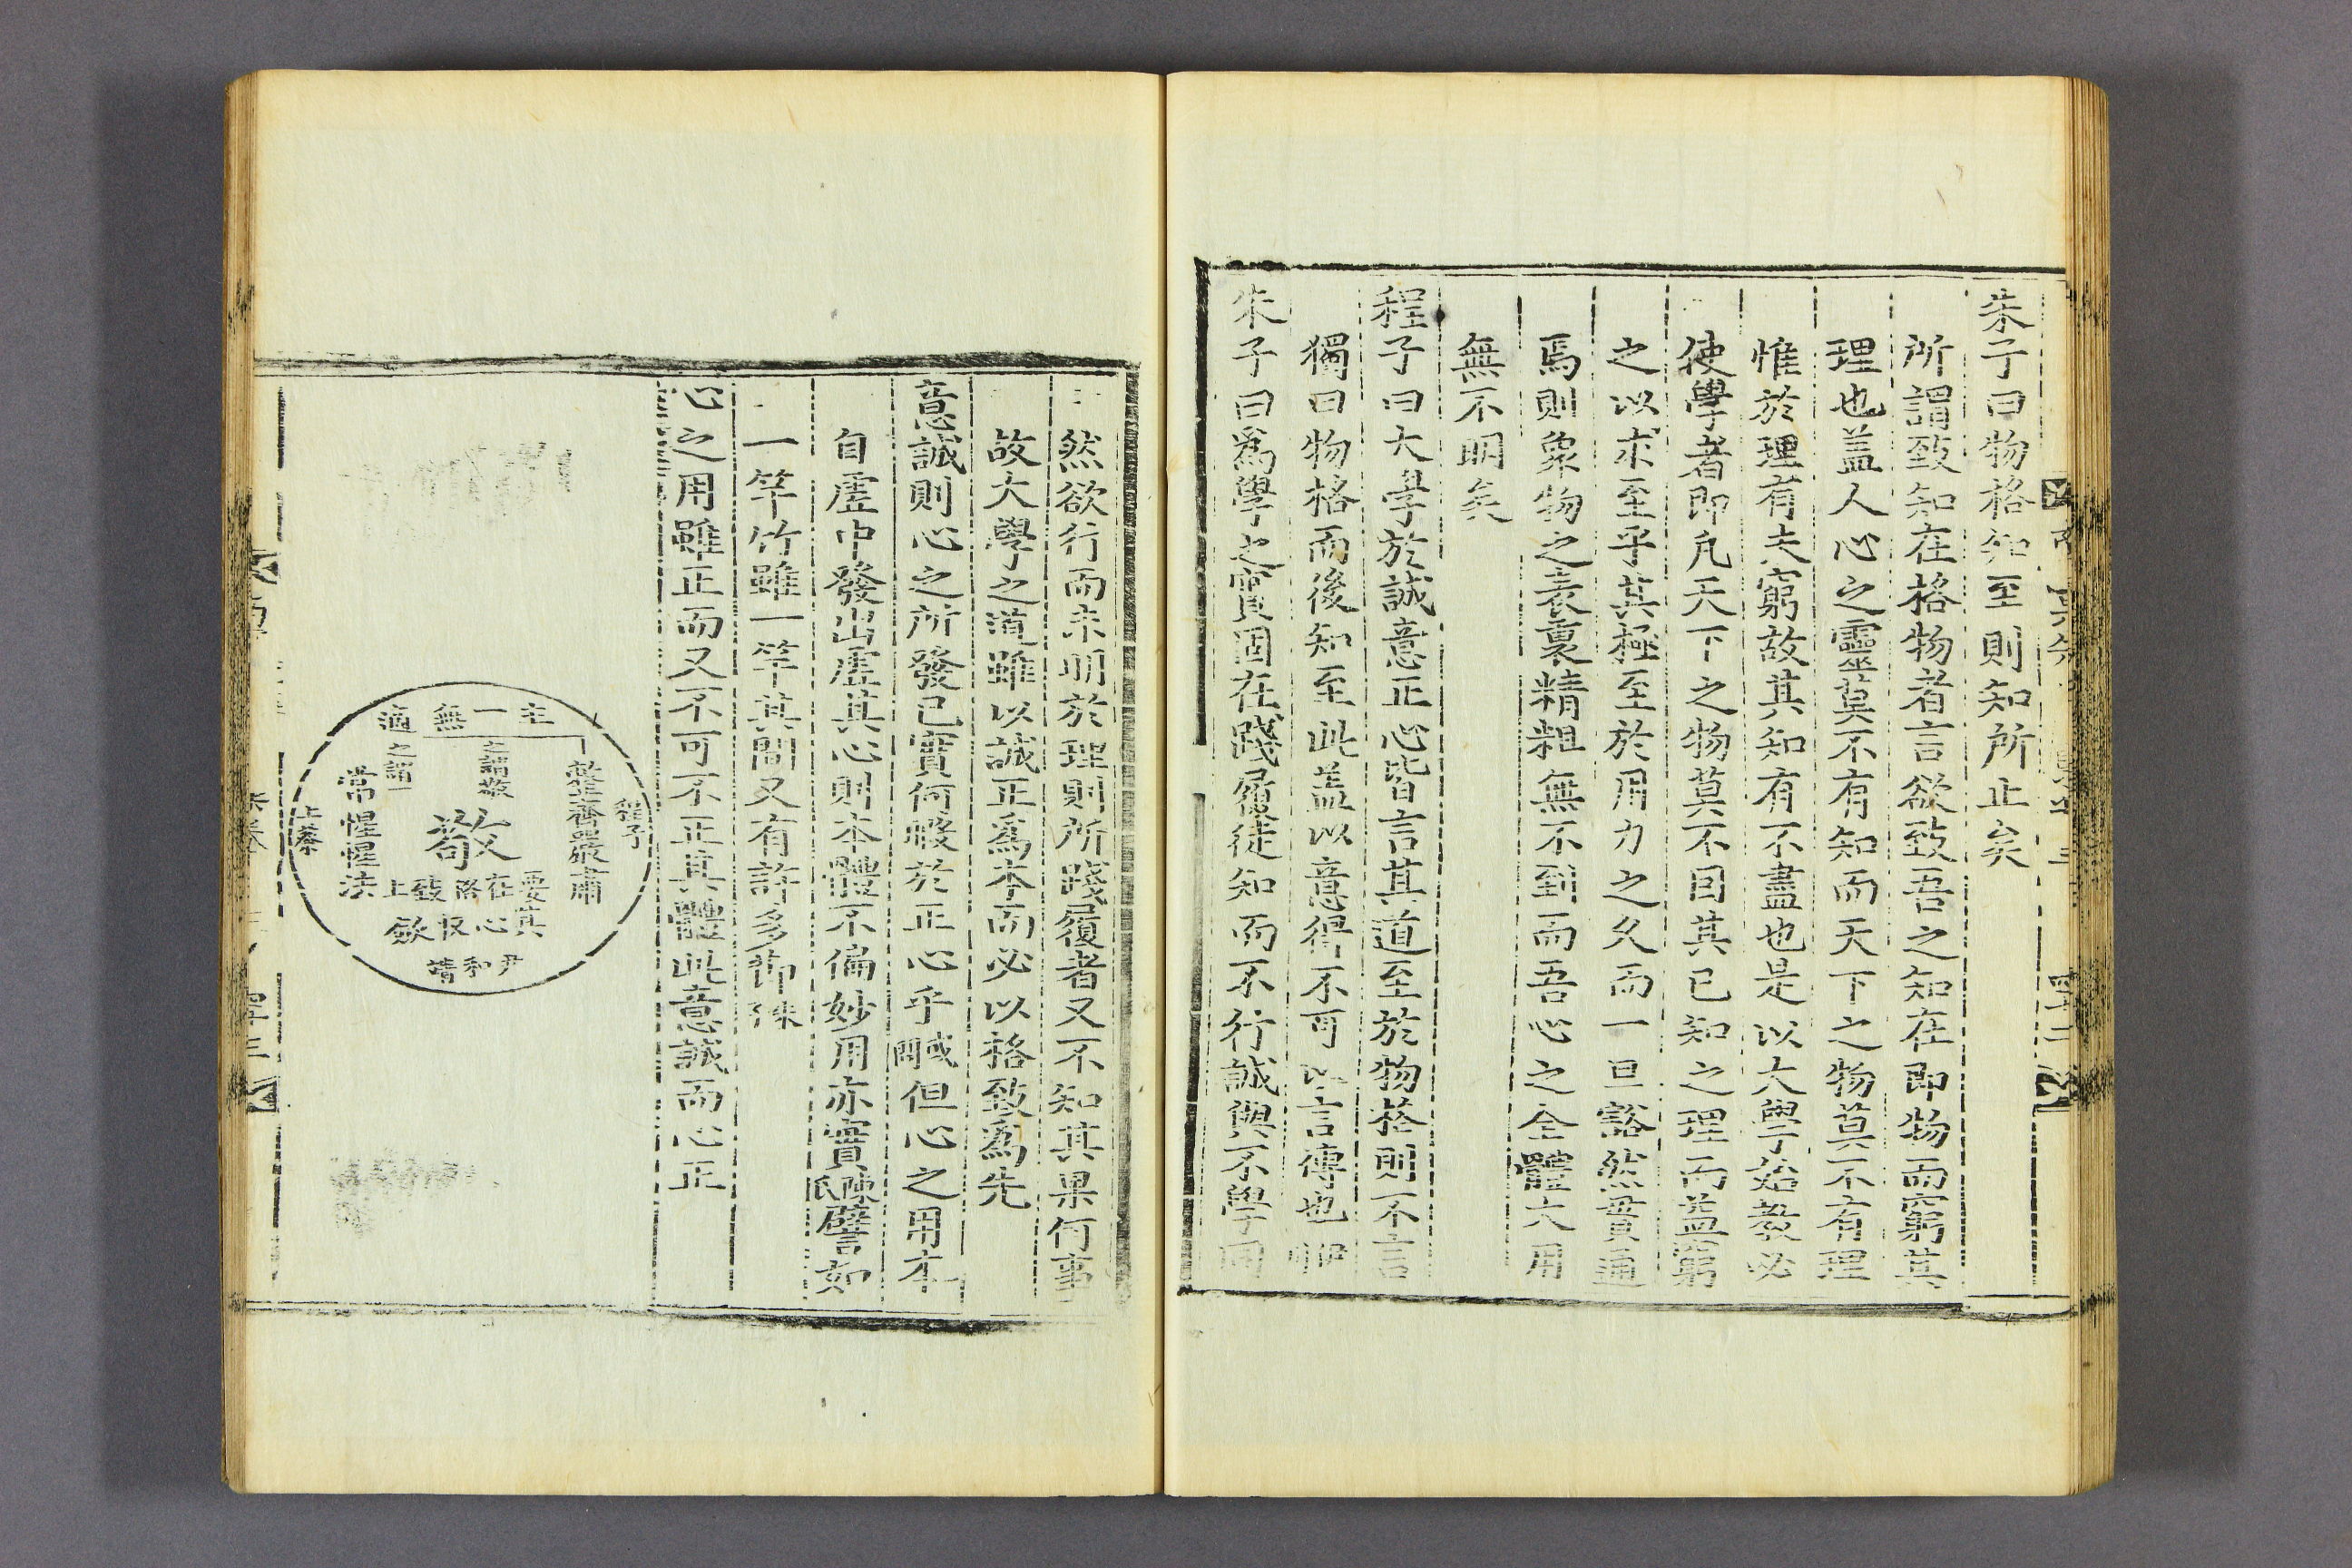 朱子曰物格知至則知所止矣
所謂致知在格物者言欲致吾之知在即物而窮其
理也盖人心之靈莫不有知而天下之物莫不有理
惟於理有未窮故其知有不盡也是以大學始教必
使學者即凡天下之物莫不因其已知之理而益窮
之以求至乎其極至於用力之久而一旦豁然貫通
焉則衆物之表裏精粗無不到而吾心之全體大用
無不明矣
程子曰大學於誠意正心皆言其道至於物格則不言
獨曰物格而後知至此盖以意得不可以言傳也
朱子曰爲學之實固在踐履徒知而不行誠與不學同
然欲行而未明於理則所踐履者又不知其果何事
故大學之道雖以誠正爲本而必以格致爲先
意誠則心之所發已實何假於正心乎 但心之用本
自虛中發出虛其心則本體不偏妙用亦實陳氏譬如
一竿竹雖一竿其間又有許多節
心之用雖正而又不可不正其體此意誠而心正
程子
整齊嚴肅
主一無適
之謂敬
之謂一
敬
常惺惺法
上蔡
其心收斂
尹和靖